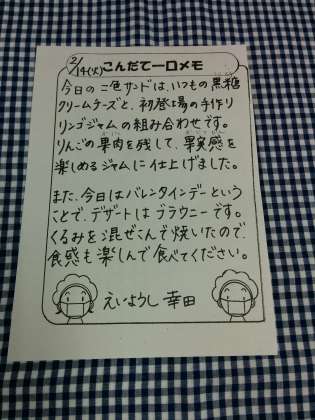 2/14(火) こんだて一口メモ
今日の二色サンドは、いつもの黒糖
クリームチーズと、初登場の手作り
リンゴジャムの組み合わせです。
りんごの果肉を残して、果実感を
楽しめるジャムに仕上げました。
また、今日はバレンタインデーという
ことで、デザートはブラウニーです。
くるみを混ぜこんで焼いたので、
食感も楽しんで食べてください。
えいようし 幸田